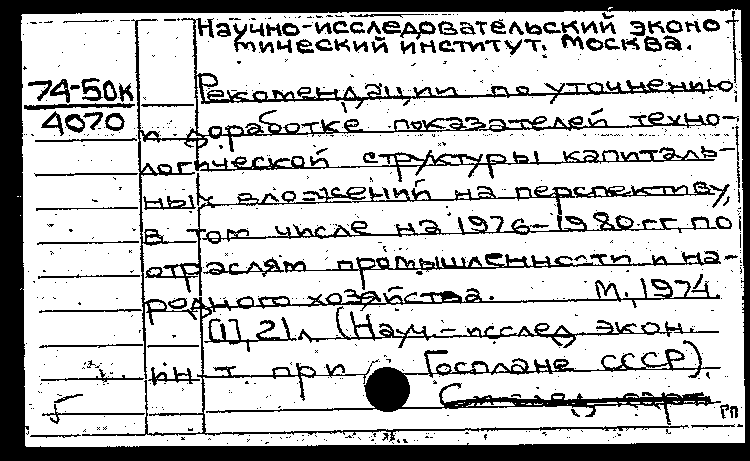 Научно-исследовательский эконо-
мический институт. Москва.
74-50к
4070
Рекомендации по уточнению
и доработке показателей техно-
логической структуры капиталь-
ных вложений на перспективу,
в том числе на 1976-1980гг. по
отраслям промышленности и на-
родного хозяйства. М., 1974.
[1], 21л. (Науч.-исслед. экон.
ин-т при Госплане СССР).
См. след. карт.
РП